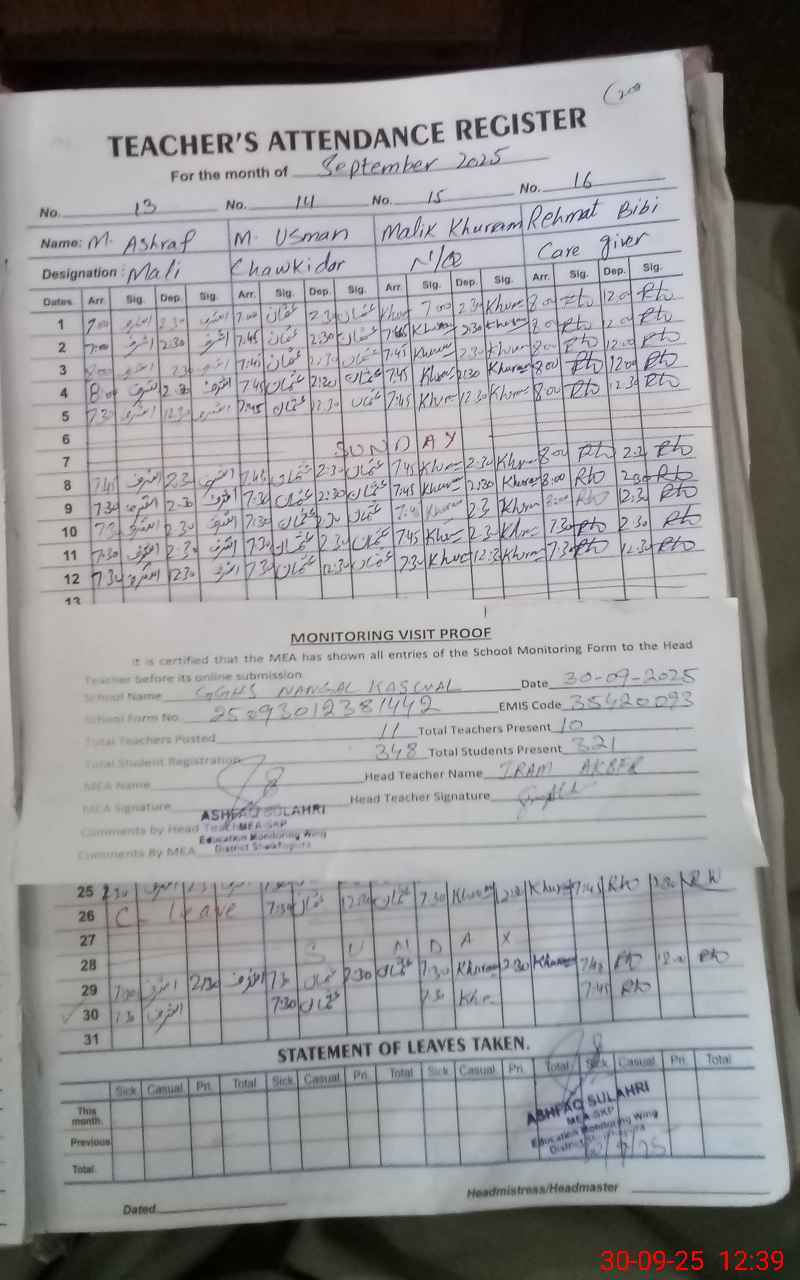 TEACHER'S ATTENDANCE REGISTER
For the month of September 2025
No. 13 No. 14 No. 15 No. 16
Name: M. Ashraf M. Usman Malik Khuram Rehmat Bibi
Designation: Mali Chawkidar N/Q Care giver
Dates Arr. Sig. Dep. Sig. Arr. Sig. Dep. Sig. Arr. Sig. Dep. Sig. Arr. Sig. Dep. Sig.
1 7:00 اشرف 2:30 اشرف 7:00 عثمان 2:30 عثمان Khur 7:00 2:30 Khurm 8:00 Rto 12:00 Rto
2 7:00 اشرف 2:30 اشرف 7:45 عثمان 2:30 عثمان 7:45 Khurm 2:30 Khurm 8:00 Rto 12:00 Rto
3 8:00 اشرف اشرف 7:45 عثمان عثمان 7:45 Khurm 2:30 Khurm 8:00 Rto 12:00 Rto
4 8:00 اشرف 2:30 اشرف 7:45 عثمان 2:30 عثمان 7:45 Khurm 2:30 Khurm 8:00 Rto Rto
5 7:30 اشرف 12:30 اشرف 7:45 عثمان 12:30 عثمان 7:45 Khurm 12:30 Khurm 8:00 Rto 12:30 Rto
6
7 SUNDAY
8 7:45 اشرف 2:3 اشرف 7:45 عثمان 2:30 عثمان 7:45 Khurm 2:30 Khurm 8:00 Rto Rto
9 7:30 اشرف 2:30 اشرف 7:30 عثمان 2:30 عثمان 7:45 Khurm 2:30 Khurm 8:00 Rto Rto
10 7:3 اشرف 2:30 اشرف 7:30 عثمان 2:30 عثمان 7:45 Khurm 2:3 Khurm 8:00 Rto 12:3 Rto
11 7:30 اشرف 2:30 اشرف 7:30 عثمان 2:30 عثمان 7:45 Khurm 2:3 Khurm 7:30 Rto 2:30 Rto
12 7:30 اشرف 12:30 اشرف 7:3 عثمان 12:30 عثمان 7:30 Khurm 12:3 Khurm 7:30 Rto 12:30 Rto
13
MONITORING VISIT PROOF
It is certified that the MEA has shown all entries of the School Monitoring Form to the Head
Teacher before its online submission.
School Name GGHS NANGAL KASWAL Date 30-09-2025
School Form No. 25093012381442 EMIS Code 35420093
Total Teachers Posted 11 Total Teachers Present 10
Total Student Registration 348 Total Students Present 321
MEA Name Head Teacher Name IRAM AKBAR
MEA Signature Head Teacher Signature
ASHFAQ SULAHRI
Comments by Head Teacher MEA-SKP
Education Monitoring Wing
Comments By MEA District Sheikhupura
25 اشرف عثمان 7:30 Khurm Khurm 7:45 Rto
26 C. Leave 7:30 عثمان 12:00 عثمان
27
28 SUNDAY
29 7:30 اشرف 2:30 اشرف 7:30 عثمان 2:30 عثمان 7:30 Khurm 2:30 Khurm 7:45 Rto 12:00 Rto
30 7:30 اشرف 7:30 عثمان 7:30 Khr 7:45 Rto
31
STATEMENT OF LEAVES TAKEN.
Sick Casual Pri. Total Sick Casual Pri. Total Sick Casual Pri. Total Sick Casual Pri. Total
This month.
Previous
Total
ASHFAQ SULAHRI
MEA-SKP
Education Monitoring Wing
Dated Headmistress/Headmaster
30-09-25 12:39